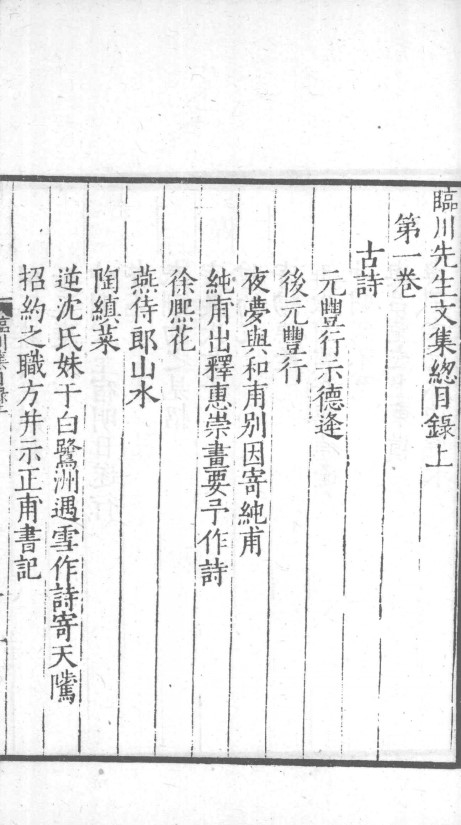 臨川先生文集緫目錄上
第一卷
古詩
元豐行示德逢
後元豐行
夜夢與和甫别因寄純甫
純甫出釋惠崇畫要予作詩
徐熈花
燕侍郎山水
陶縝菜
逆沈氏妹于白鷺洲遇雪作詩寄天隲
招約之職方并示正甫書記